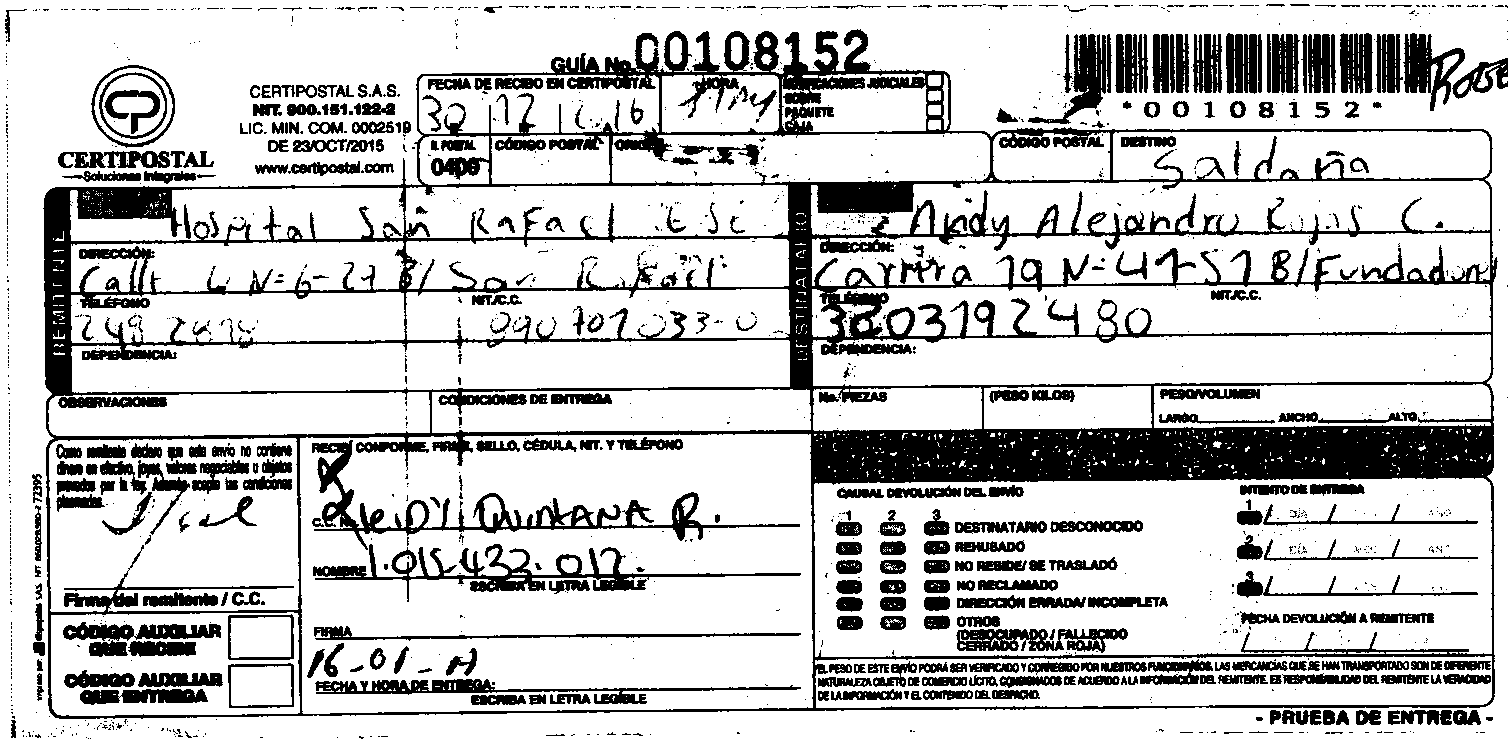 GUÍA No. 00108152
*00108152*
CERTIPOSTAL
Soluciones Integrales
CERTIPOSTAL S.A.S.
NIT. 900.151.122-2
LIC. MIN. COM. 0002519
DE 23/OCT/2015
www.certipostal.com
FECHA DE RECIBO EN CERTIPOSTAL
30 12 16
HORA
NOTIFICACIONES JUDICIALES
SOBRE
PAQUETE
CAJA
R. POSTAL
0400
CÓDIGO POSTAL
ORIGEN
CÓDIGO POSTAL
DESTINO
Saldaña
REMITENTE
Hospital San Rafael ESE
DIRECCIÓN:
Calle 4 N=6-27 B/ San Rafael
TELÉFONO
248 2818
NIT/C.C.
890701033-0
DEPENDENCIA:
DESTINATARIO
Andy Alejandro Rojas C.
DIRECCIÓN:
Carrera 19 N=41-51 B/Fundadores
TELÉFONO
3203192480
NIT/C.C.
DEPENDENCIA:
OBSERVACIONES
CONDICIONES DE ENTREGA
No. PIEZAS
(PESO KILOS)
PESO/VOLUMEN
LARGO ANCHO ALTO
Como remitente declaro que este envío no contiene
dinero en efectivo, joyas, valores negociables u objetos
provados por la ley. Además acepto las condiciones
plasmadas.
Firma del remitente / C.C.
CÓDIGO AUXILIAR
QUE RECIBE
CÓDIGO AUXILIAR
QUE ENTREGA
RECIBÍ CONFORME, FIRMA, SELLO, CÉDULA, NIT. Y TELÉFONO
LEIDY QUINTANA R.
C.C. N.
1.015.432.017.
NOMBRE
ESCRIBA EN LETRA LEGIBLE
FIRMA
16-01-17
FECHA Y HORA DE ENTREGA:
ESCRIBA EN LETRA LEGIBLE
CAUSAL DEVOLUCIÓN DEL ENVÍO
1 2 3
DESTINATARIO DESCONOCIDO
REHUSADO
NO RESIDE/ SE TRASLADÓ
NO RECLAMADO
DIRECCIÓN ERRADA/ INCOMPLETA
OTROS
(DESOCUPADO / FALLECIDO
CERRADO / ZONA ROJA)
INTENTO DE ENTREGA
1 / DÍA / MES / AÑO
2 / DÍA / MES / AÑO
3 / / /
FECHA DEVOLUCIÓN A REMITENTE
/ / /
"EL PESO DE ESTE ENVÍO PODRÁ SER VERIFICADO Y CORREGIDO POR NUESTROS FUNCIONARIOS. LAS MERCANCÍAS QUE SE HAN TRANSPORTADO SON DE DIFERENTE
NATURALEZA OBJETO DE COMERCIO LÍCITO, CONSIGNADOS DE ACUERDO A LA INFORMACIÓN DEL REMITENTE. ES RESPONSABILIDAD DEL REMITENTE LA VERACIDAD
DE LA INFORMACIÓN Y EL CONTENIDO DEL DESPACHO.
- PRUEBA DE ENTREGA -